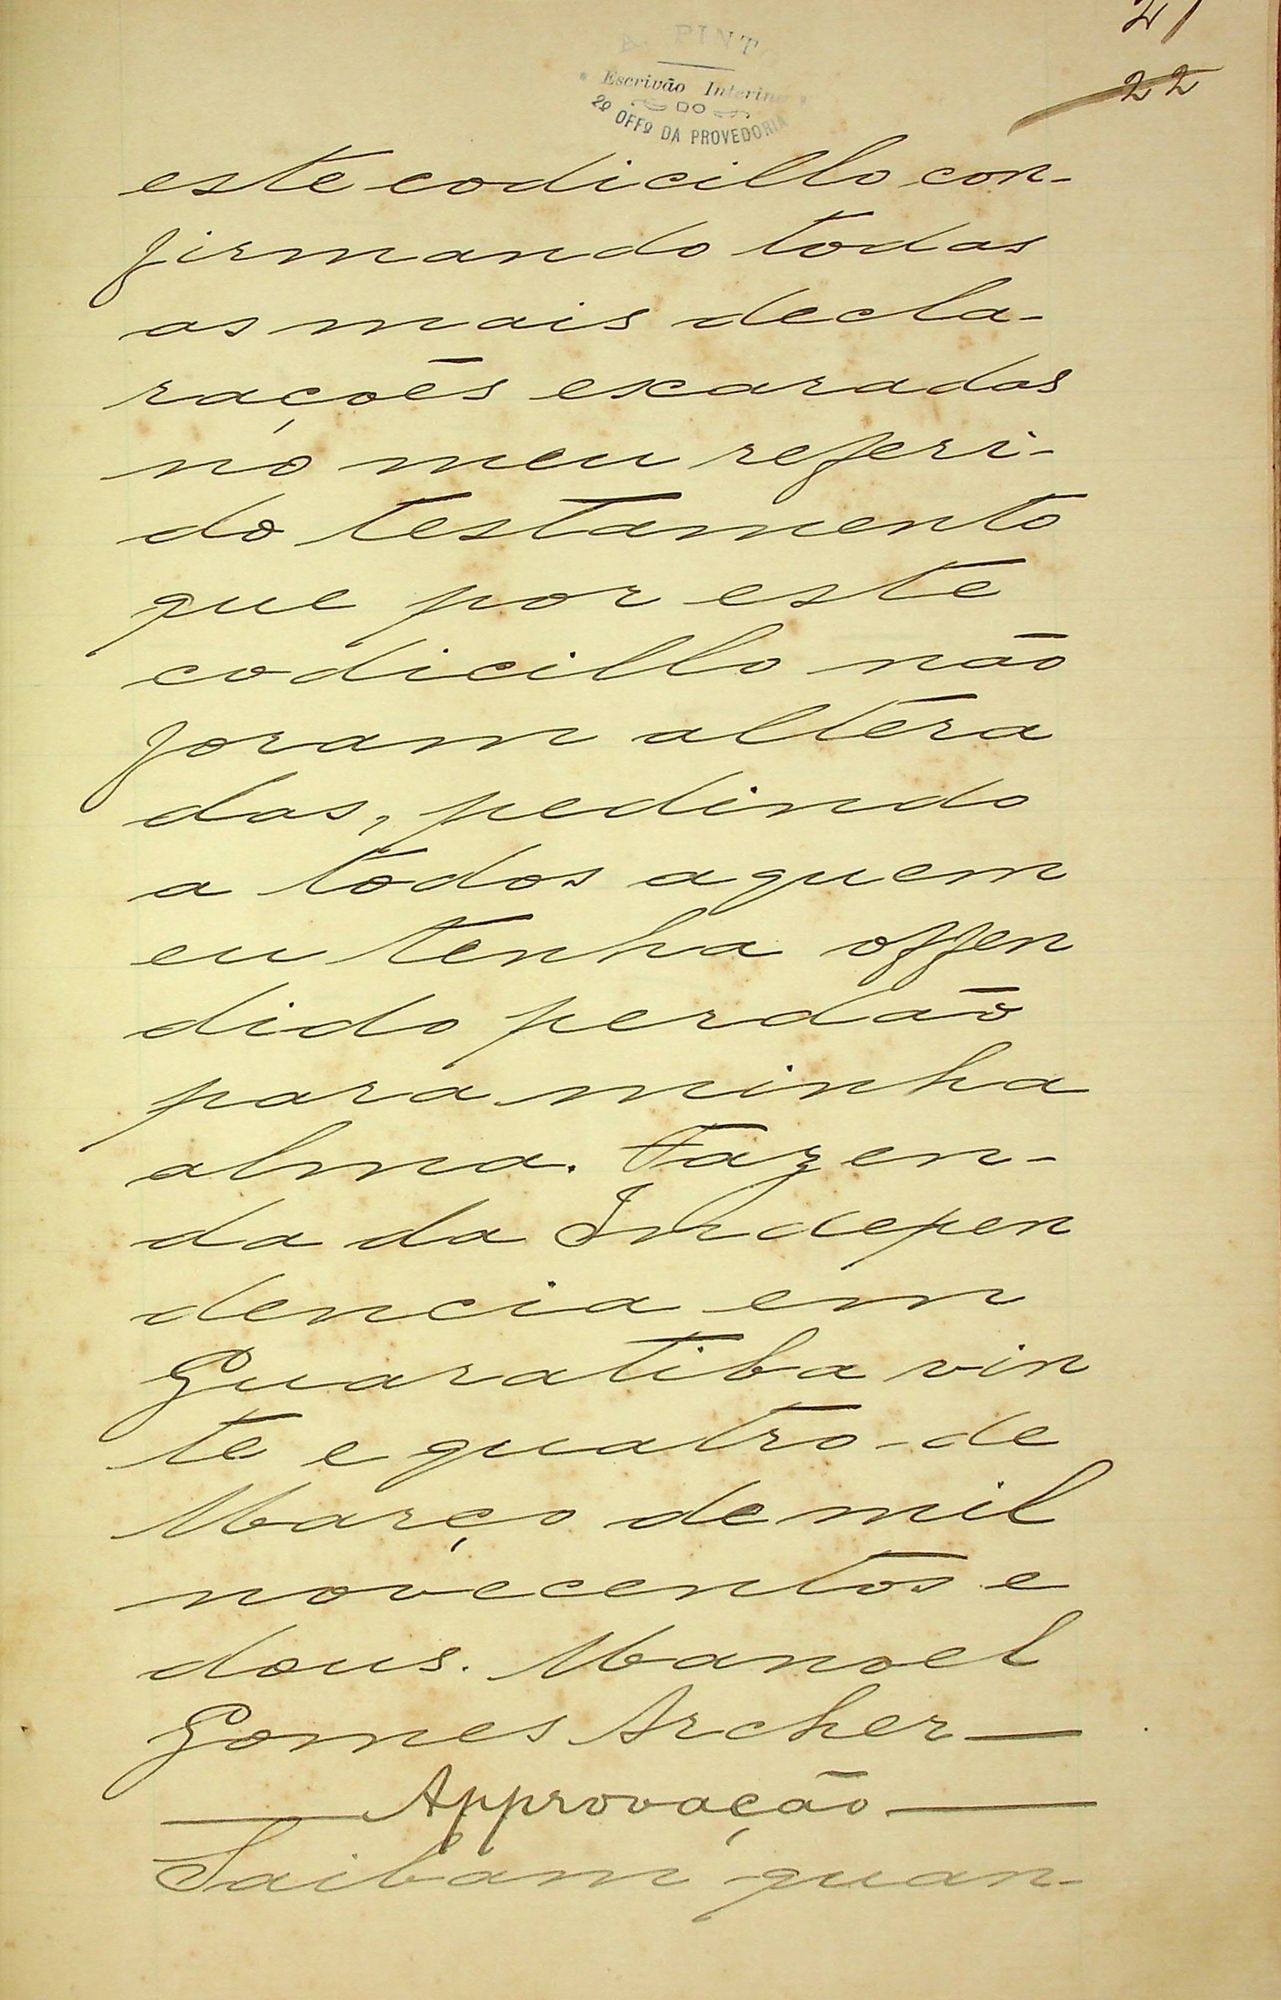 21
22
A. PINTO
Escrivão Interino
DO
2º OFFº DA PROVEDORIA
este codicillo con-
firmando todas
as mais decla-
rações exaradas
no meu referi-
do testamento
que por este
codicillo não
foram altera
das, pedindo
a todos a quem
eu tenha offen
dido perdão
para minha
alma. Fazen-
da da Indepen
dencia em
Guaratiba vin
te e quatro de
Março de mil
novecentos e
dous. Manoel
Gomes Archer
Approvação
Saibam quan-